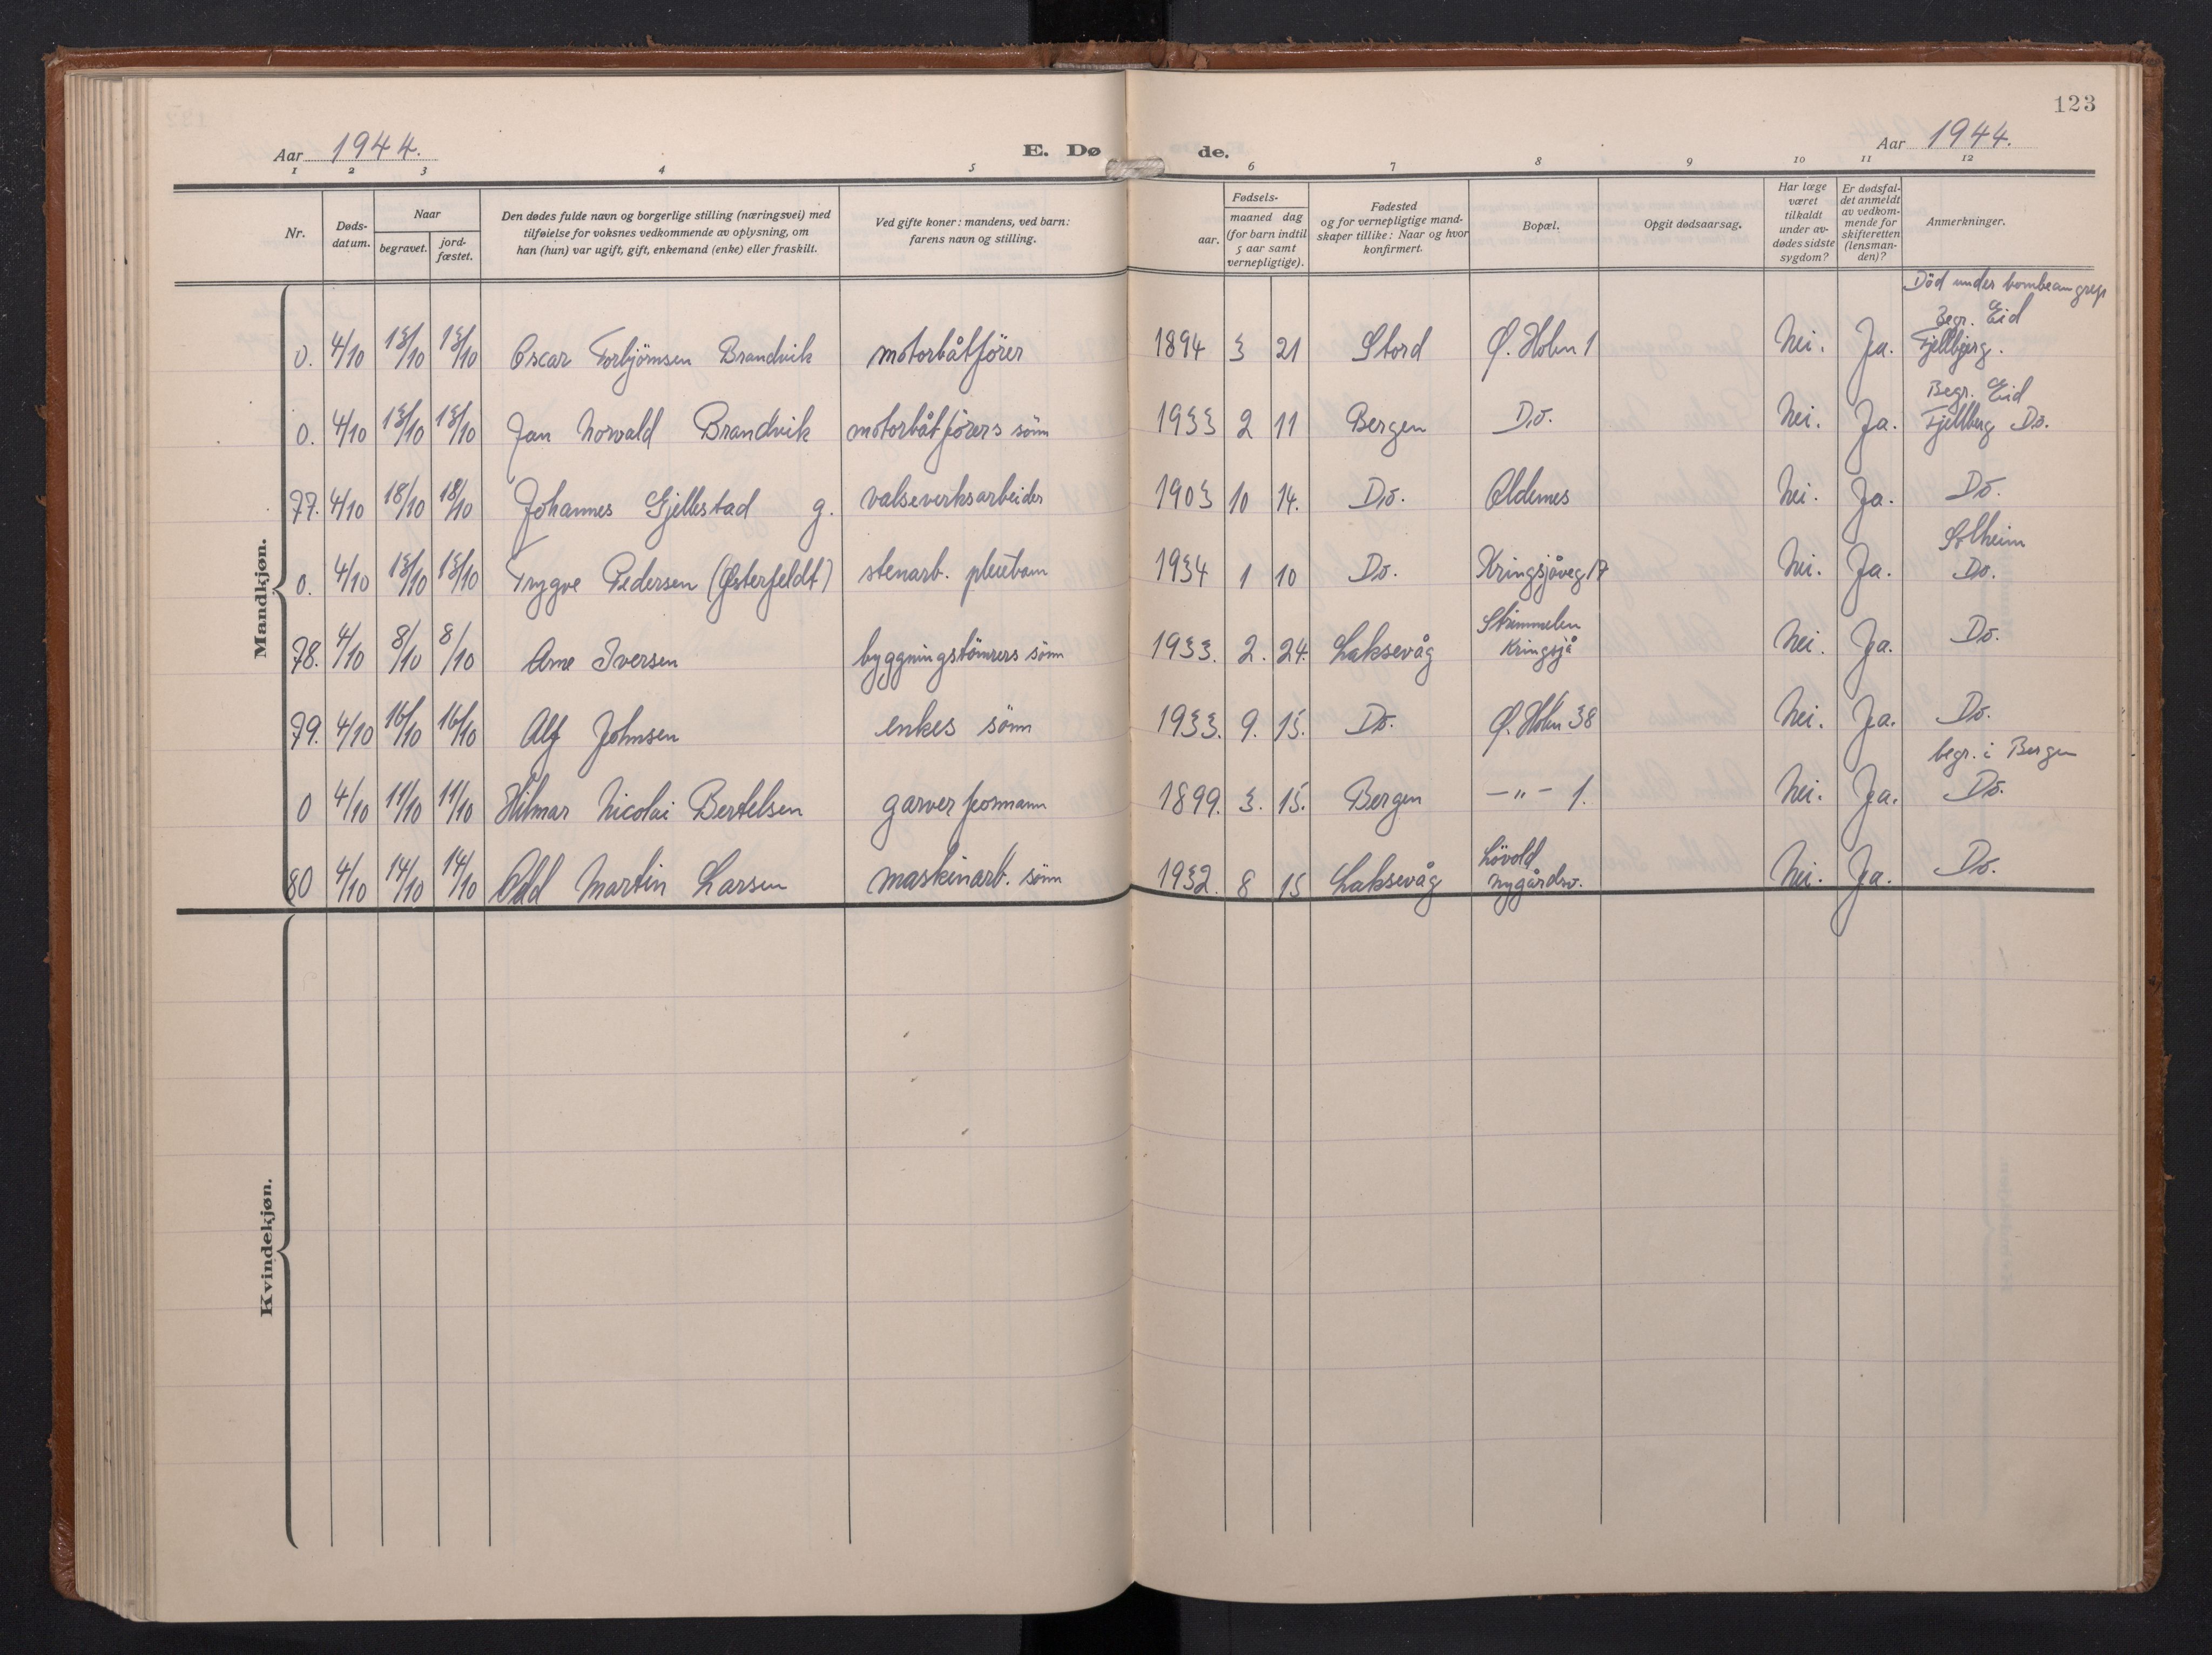 123
Aar 1944.
E. Dø
de.
Aar 1944.
1 2 3 4 5 6 7 8 9 10 11 12
Nr.
Døds-
datum.
Naar
begravet.
jord-
fæstet.
Den dødes fulde navn og borgerlige stilling (næringsvei) med
tilføielse for voksnes vedkommende av oplysning, om
han (hun) var ugift, gift, enkemand (enke) eller fraskilt.
Ved gifte koner: mandens, ved barn:
farens navn og stilling.
Fødsels-
aar.
maaned dag
(for barn indtil
5 aar samt
vernepligtige).
Fødested
og for vernepligtige mand-
skaper tillike: Naar og hvor
konfirmert.
Bopæl.
Opgit dødsaarsag.
Har læge
været
tilkaldt
under av-
dødes sidste
sygdom?
Er dødsfal-
det anmeldt
av vedkom-
mende for
skifteretten
(lensman-
den)?
Anmerkninger.
Mandkjøn.
Död under bombeangrep
Begr. Eid
0. 4/10 13/10 13/10 Oscar Torbjörnsen Brandvik motorbåtförer 1894 3 21 Stord Ø. Holm 1 Nei. Ja. Fjellbjerg.
Begr. Eid
0. 4/10 13/10 13/10 Jan Norvald Brandvik motorbåtförers sönn 1933 2 11 Bergen Do. Nei. Ja. Fjellberg Do.
77. 4/10 18/10 18/10 Johannes Gjellestad g. valseverksarbeider 1903 10 14. Do. Oldernes Nei. Ja. Do.
Solheim
0. 4/10 13/10 13/10 Trygve Pedersen (Østerfeldt) stenarb. pleiebarn 1934 1 10 Do. Kringsjåveg 17 Nei. Ja. Do.
Strimmelen
78. 4/10 8/10 8/10 Arne Iversen byggningstömrers sönn 1933. 2. 24. Laksevåg Kringsjå Nei. Ja. Do.
79. 4/10 16/10 16/10 Alf Johnsen enkes sönn 1933. 9. 15. Do. Ø. Holm 38 Nei. Ja. Do.
begr. i Bergen
0 4/10 11/10 11/10 Hilmar Nicolai Bertelsen garver formann 1899. 3. 15. Bergen -"- 1. Nei. Ja. Do.
Lövold
80 4/10 14/10 14/10 Odd Martin Larsen maskinarb. sönn 1932. 8 15 Laksevåg Nygårdsv. Nei. Ja. Do.
Kvindekjøn.